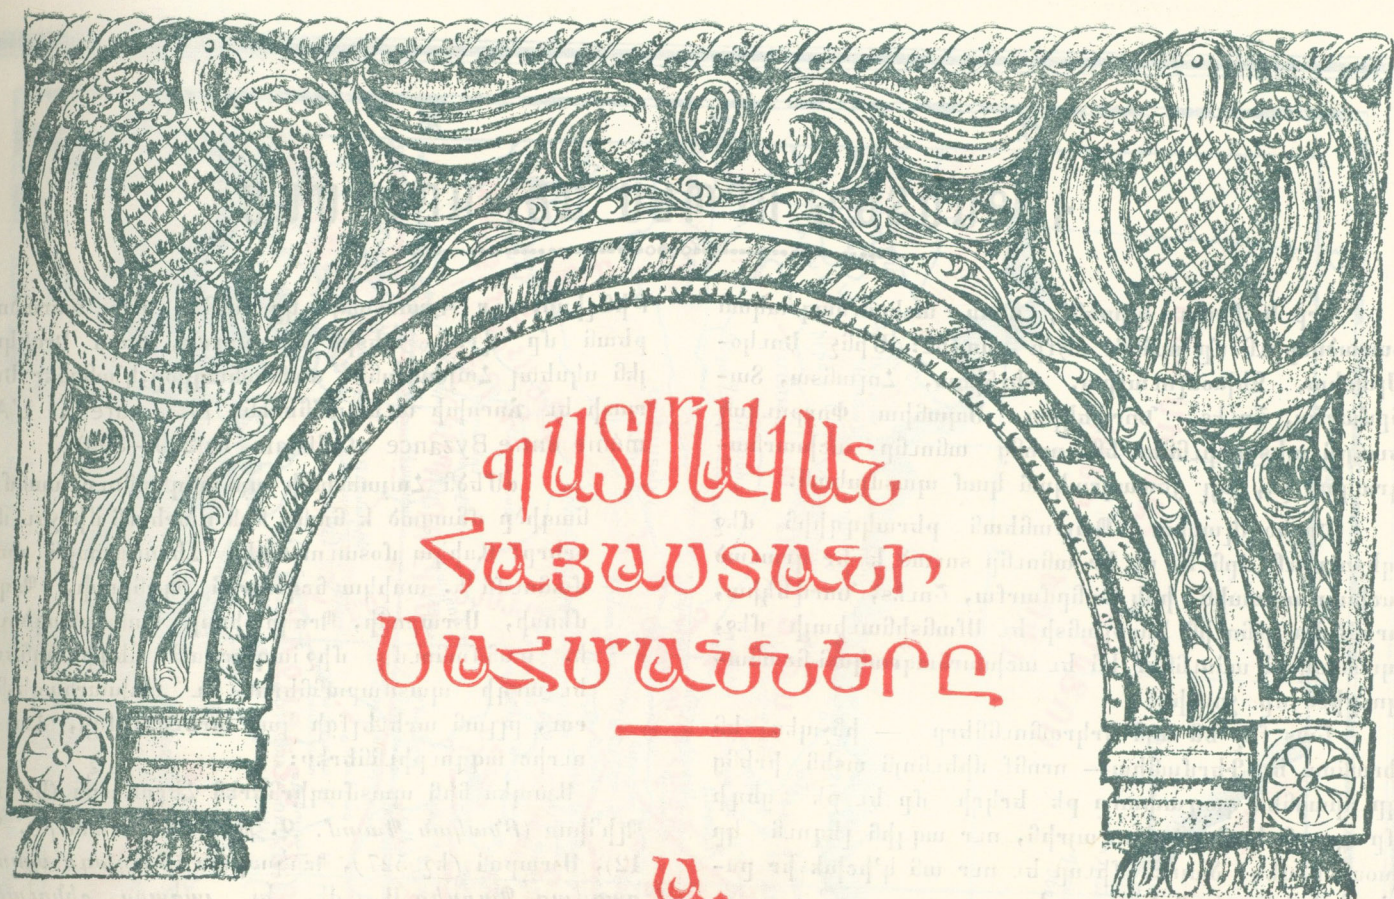 ՊԱՏՄԱԿԱՆ
ՀԱՅԱՍՏԱՆԻ
ՍԱՀՄԱՆՆԵՐԸ
Ա